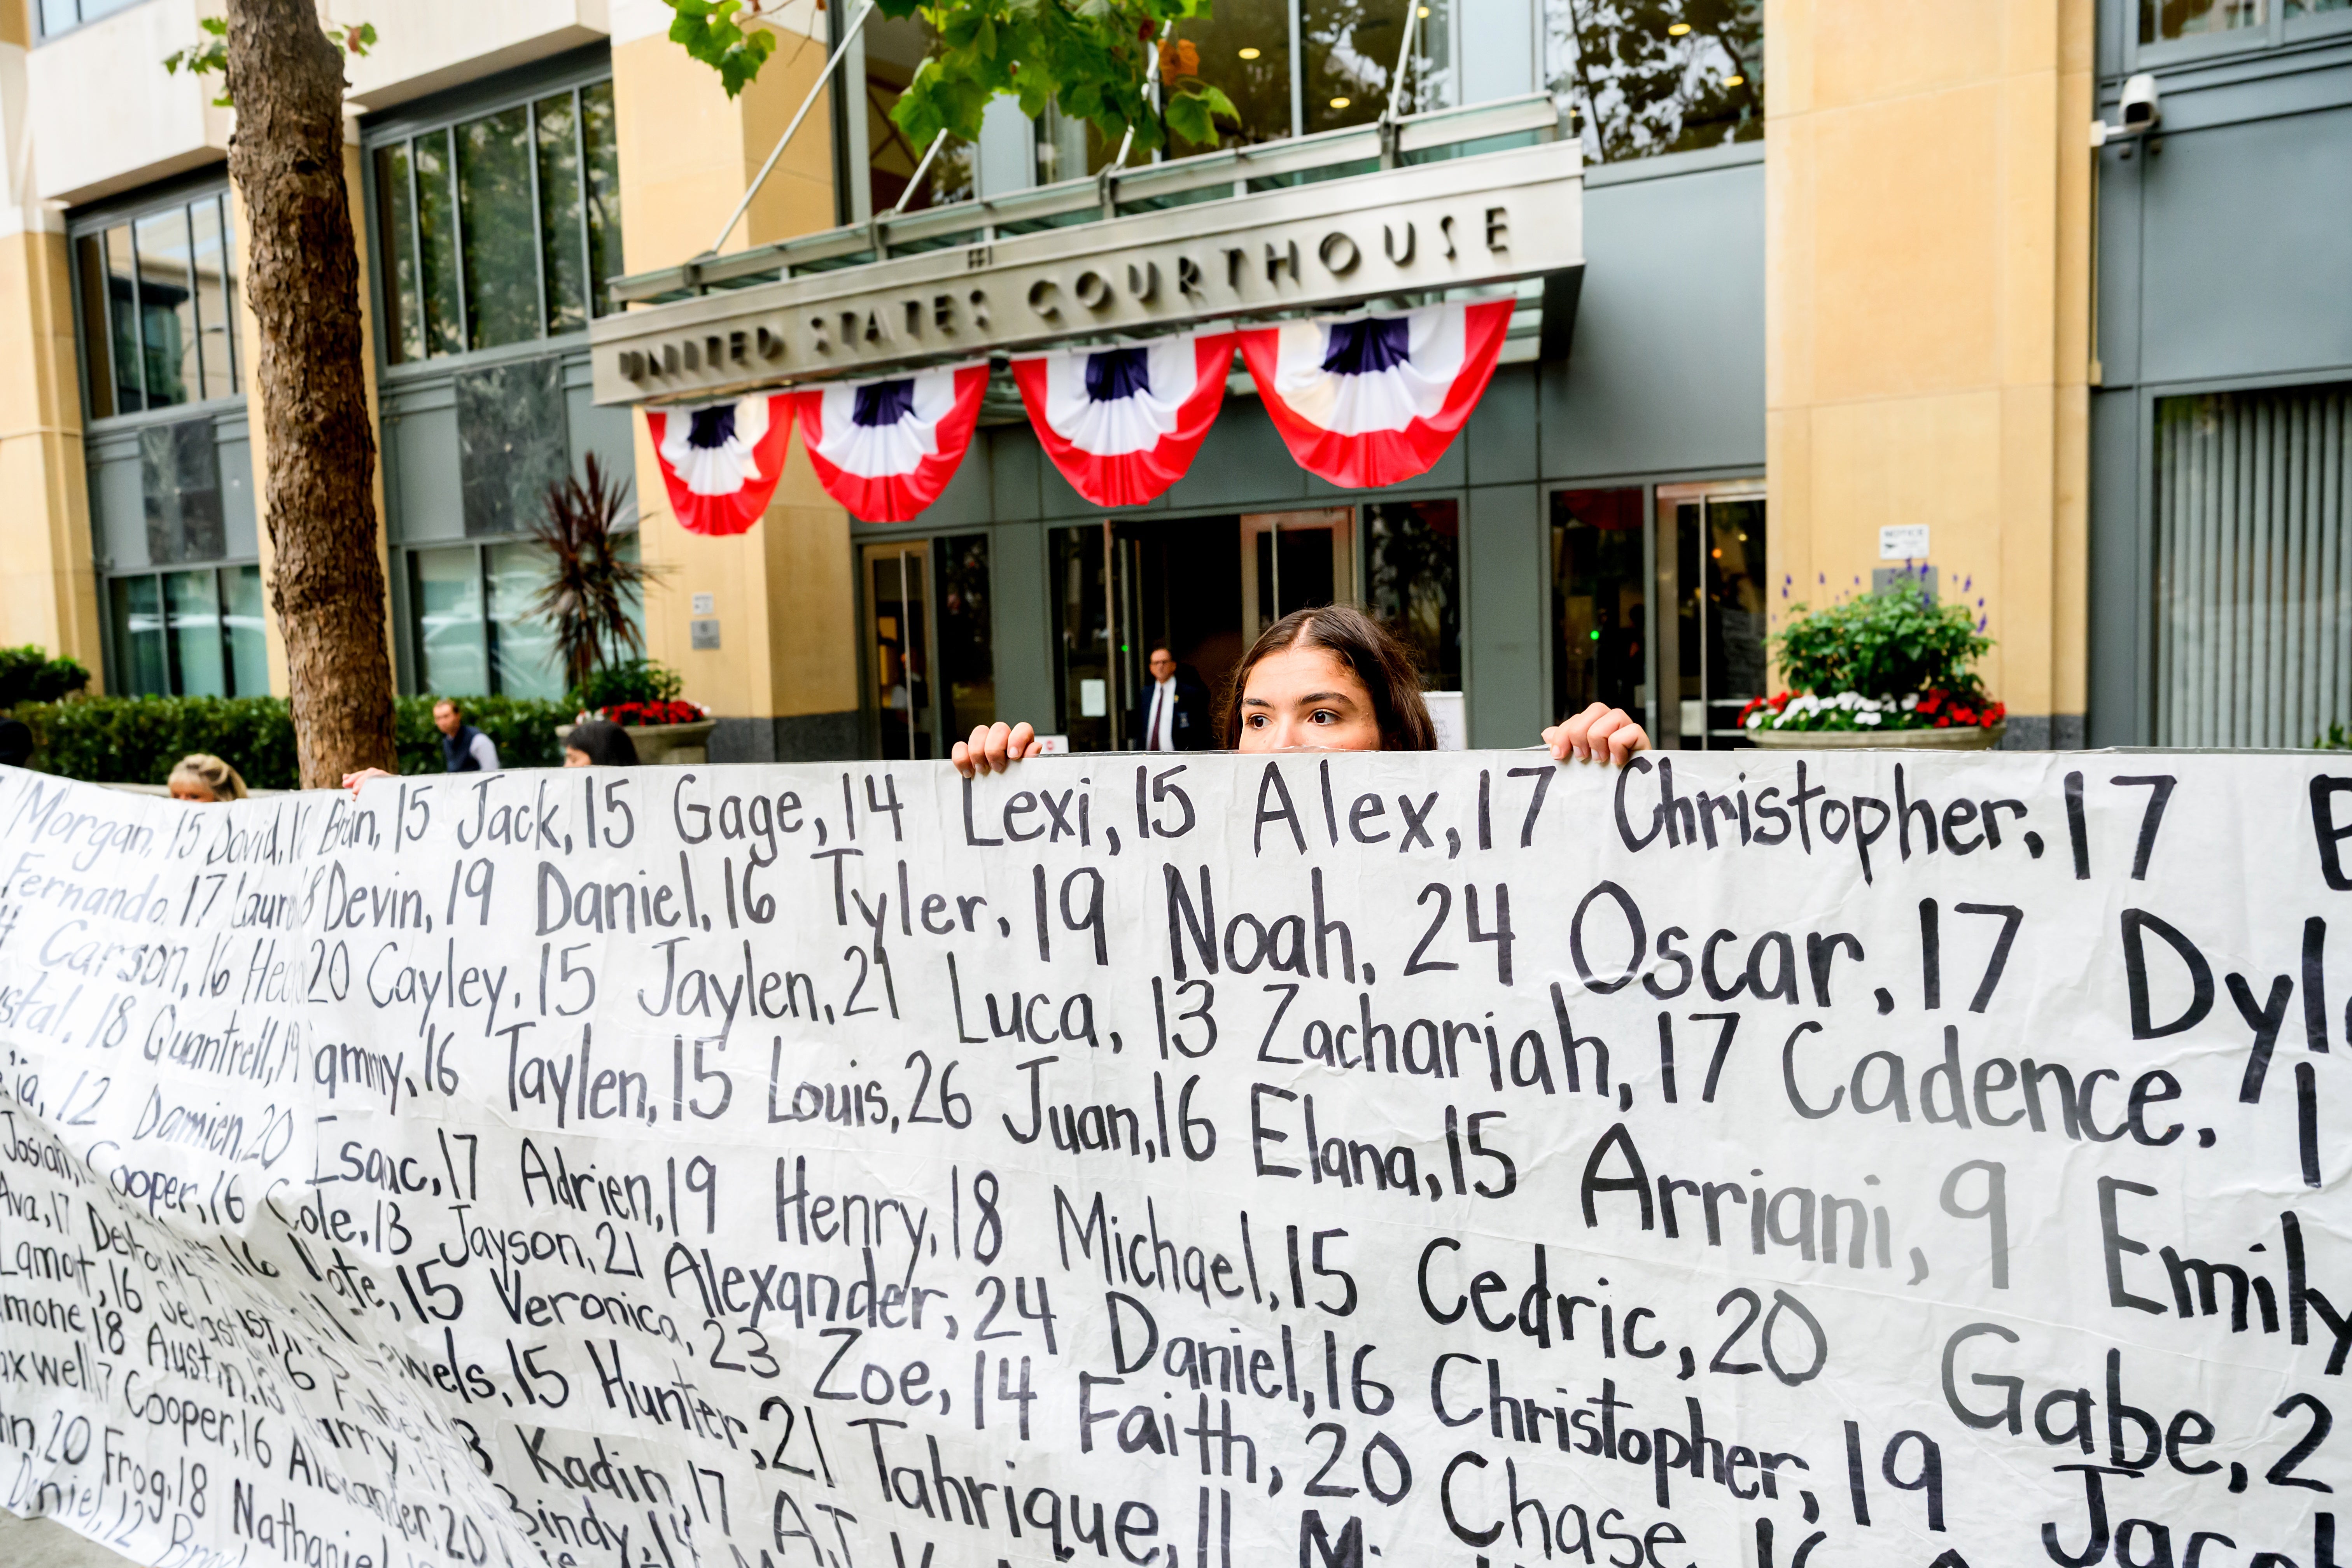 UNITED STATES COURTHOUSE
NOTICE
Morgan, 15 David, 1 Brian, 15 Jack, 15 Gage, 14 Lexi, 15 Alex, 17 Christopher, 17
Fernando, 17 Devin, 19 Daniel, 16 Tyler, 19 Noah, 24 Oscar, 17 Dyl
Carson, 16 20 Cayley, 15 Jaylen, 21 Luca, 13 Zachariah, 17 Cadence, 1
stal, 18 Quantrell, 19 ammy, 16 Taylen, 15 Louis, 26 Juan, 16 Elana, 15 Arriani, 9 Emily
ia, 12 Damien, 20 Isaac, 17 Adrien, 19 Henry, 18 Michael, 15 Cedric, 20 Gabe, 2
Josiah, Cooper, 16 Cole, 13 Jayson, 21 Alexander, 24 Daniel, 16 Christopher, 19 Jacol
Ava, 17 16 Nate, 15 Veronica, 23 Zoe, 14 Faith, 20 Chase, 16
Lamot, 16 wels, 15 Hunter, 21 Tahrique, 11
mone, 18 Austin, 13 3 Kadin, 17 A.T.
axwell, 17 Cooper, 16 Harry, Bindy, 14
hn, 20 Frog, 18 Alexander, 20
Daniel, 12 Nathaniel